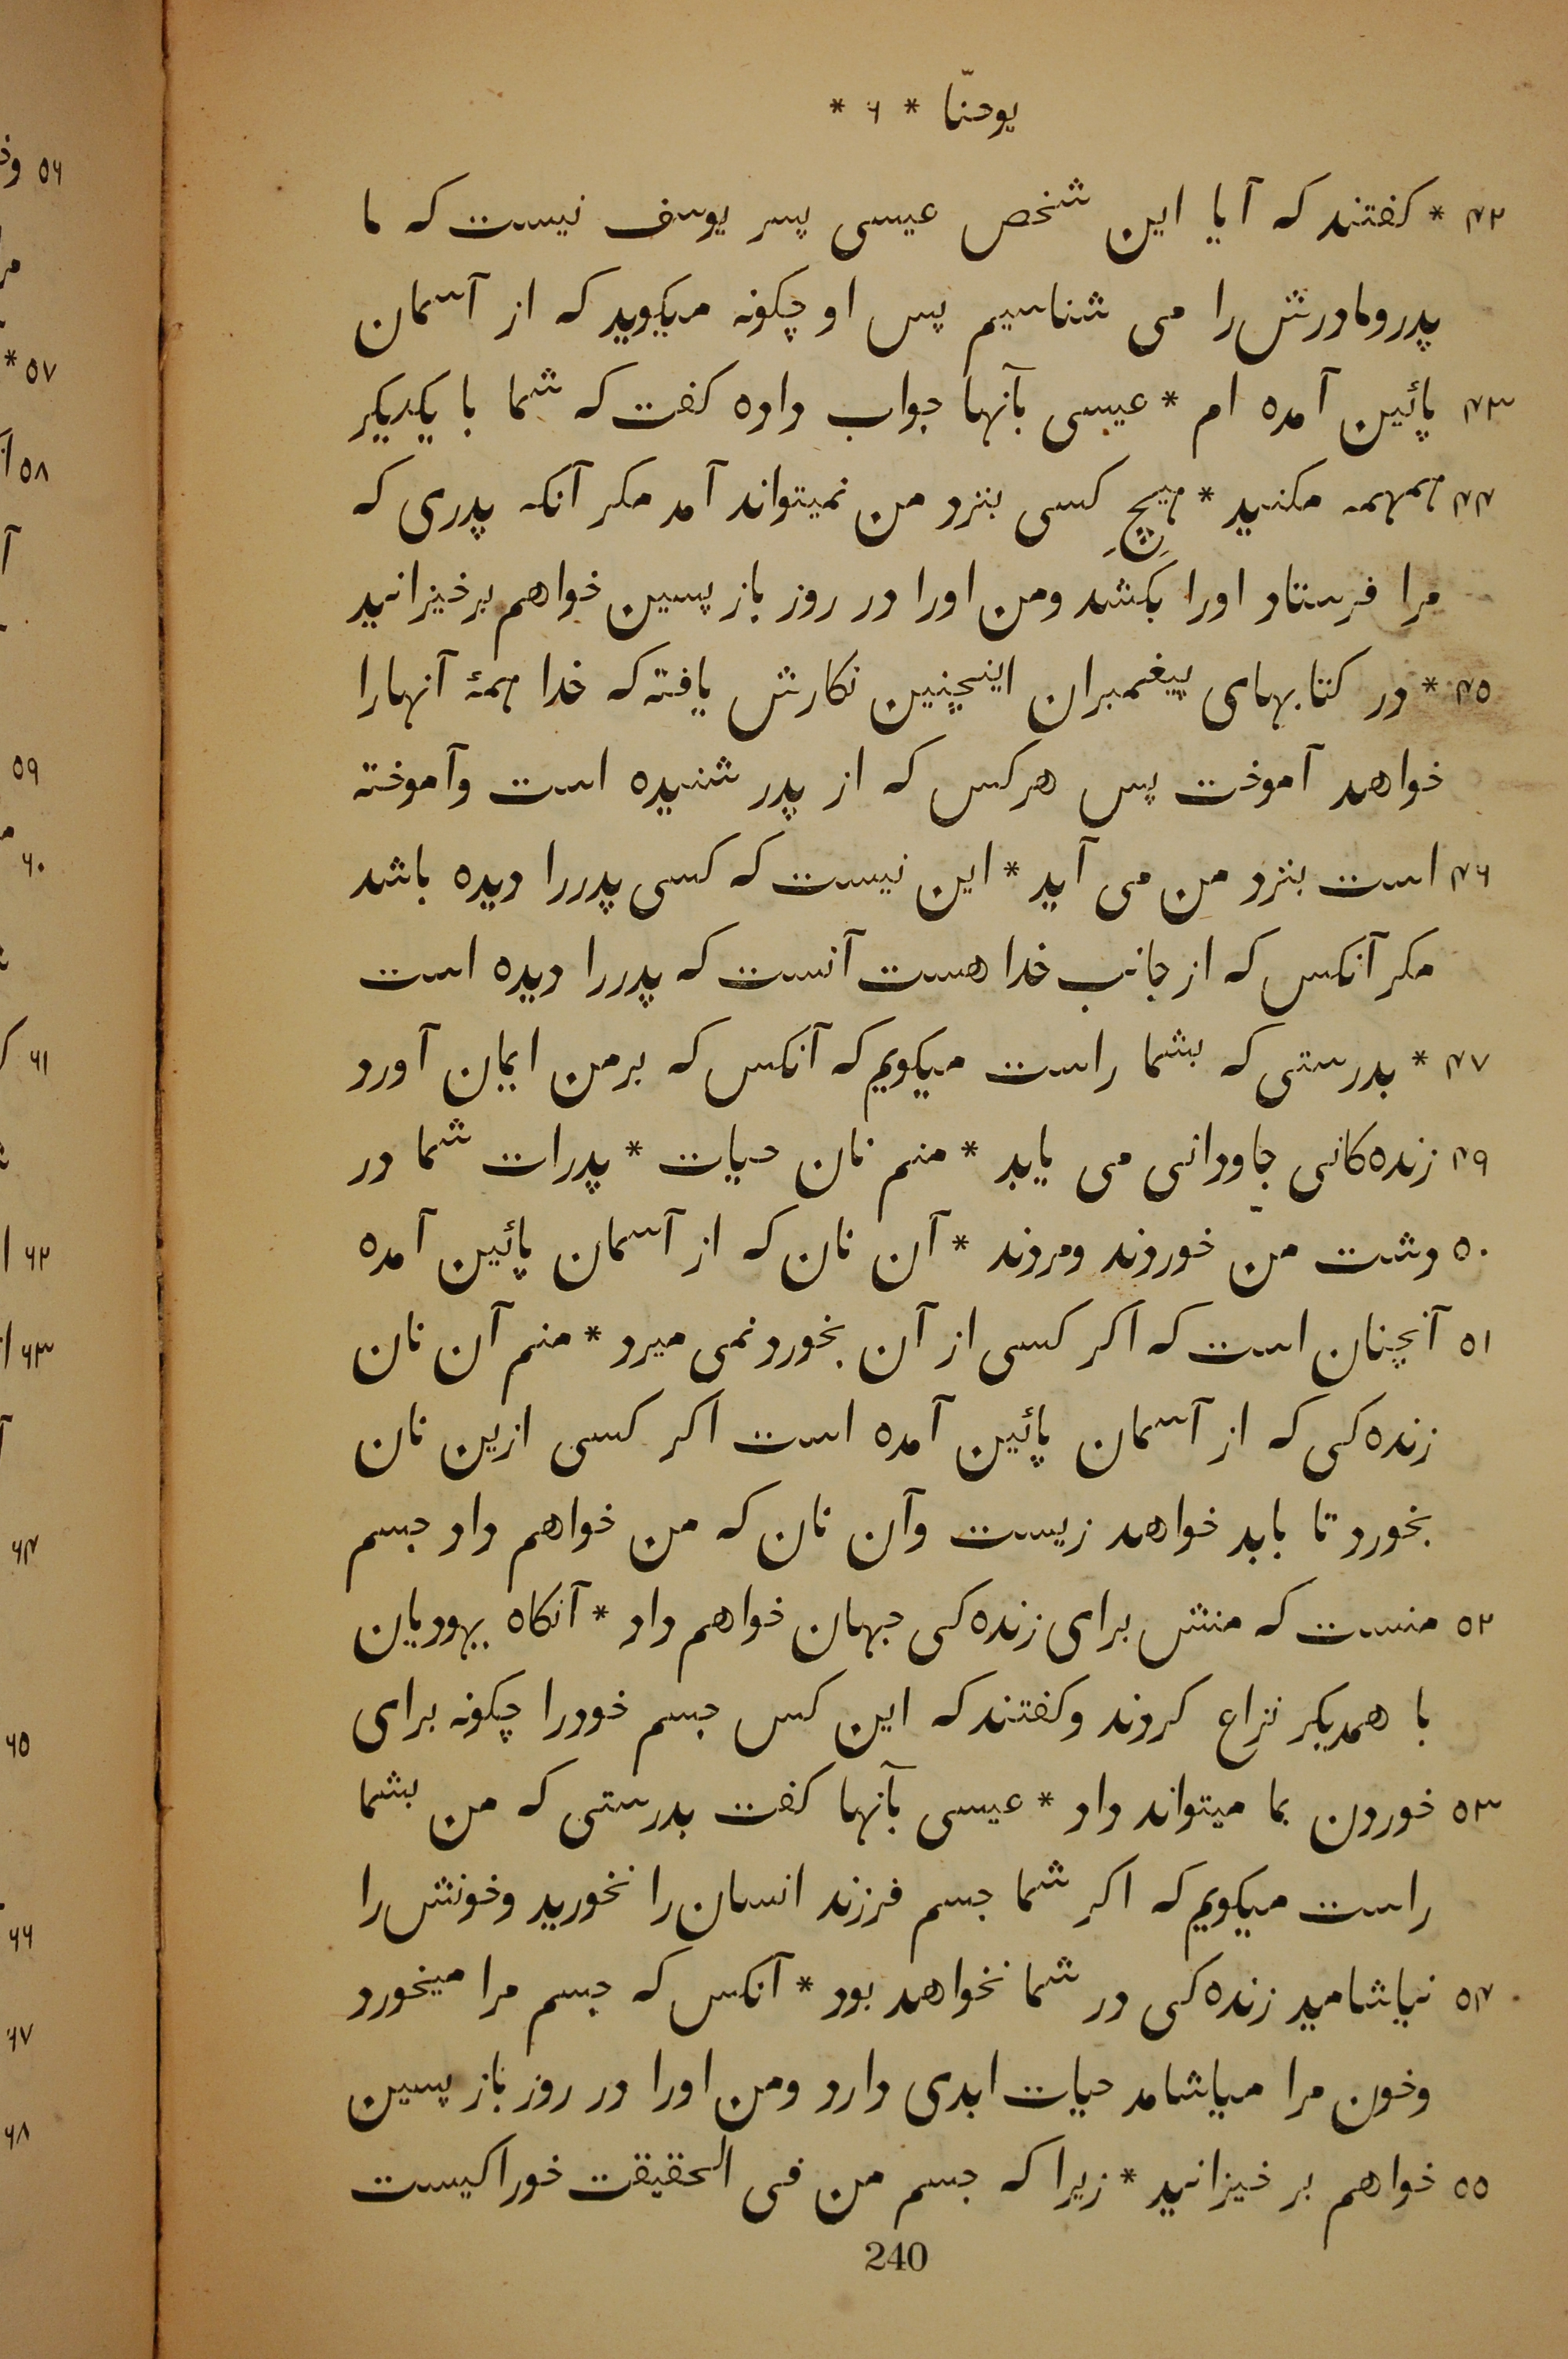 يوحنّا * ۶ *
۴۲ * کفتند که آيا اين شخص عيسی پسر يوسف نيست که ما
پدرومادرش را می شناسيم پس او چکونه ميکويد که از آسمان
۴۳ پائين آمده ام * عيسی بآنها جواب داده کفت که شما با يکديکر
۴۴ همهمه مکنيد * هيچ کسی بنزد من نميتواند آمد مکر آنکه پدری که
مرا فرستاد اورا بکشد ومن اورا در روز باز پسين خواهم برخيزانيد
۴۵ * در کتابهای پيغمبران اينچنين نکارش يافته که خدا همۀ آنهارا
خواهد آموخت پس هرکس که از پدر شنيده است وآموخته
۴۶ است بنزد من می آيد * اين نيست که کسی پدررا ديده باشد
مکر آنکس که از جانب خدا هست آنست که پدررا ديده است
۴۷ * بدرستی که بشما راست ميکويم که آنکس که برمن ايمان آورد
۴۹ زنده‌کانی جاودانی می يابد * منم نان حيات * پدرات شما در
۵۰ دشت من خوردند ومردند * آن نان که از آسمان پائين آمده
۵۱ آنچنان است که اکر کسی از آن بخورد نمی ميرد * منم آن نان
زنده‌کی که از آسمان پائين آمده است اکر کسی ازين نان
بخورد تا بابد خواهد زيست وآن نان که من خواهم داد جسم
۵۲ منست که منش برای زنده‌کی جهان خواهم داد * آنکاه يهوديان
با همديکر نزاع کردند وکفتند که اين کس جسم خودرا چکونه برای
۵۳ خوردن بما ميتواند داد * عيسی بآنها کفت بدرستی که من بشما
راست ميکويم که اکر شما جسم فرزند انسان را نخوريد وخونش را
۵۴ نياشاميد زنده‌کی در شما نخواهد بود * آنکس که جسم مرا ميخورد
وخون مرا مياشامد حيات ابدی دارد ومن اورا در روز باز پسين
۵۵ خواهم بر خيزانيد * زيرا که جسم من فی الحقيقت خوراکيست
240
۵۶
۵۷ *
۵۸
۵۹
۶۰
۶۱
۶۲
۶۳
۶۴
۶۵
۶۶
۶۷
۶۸